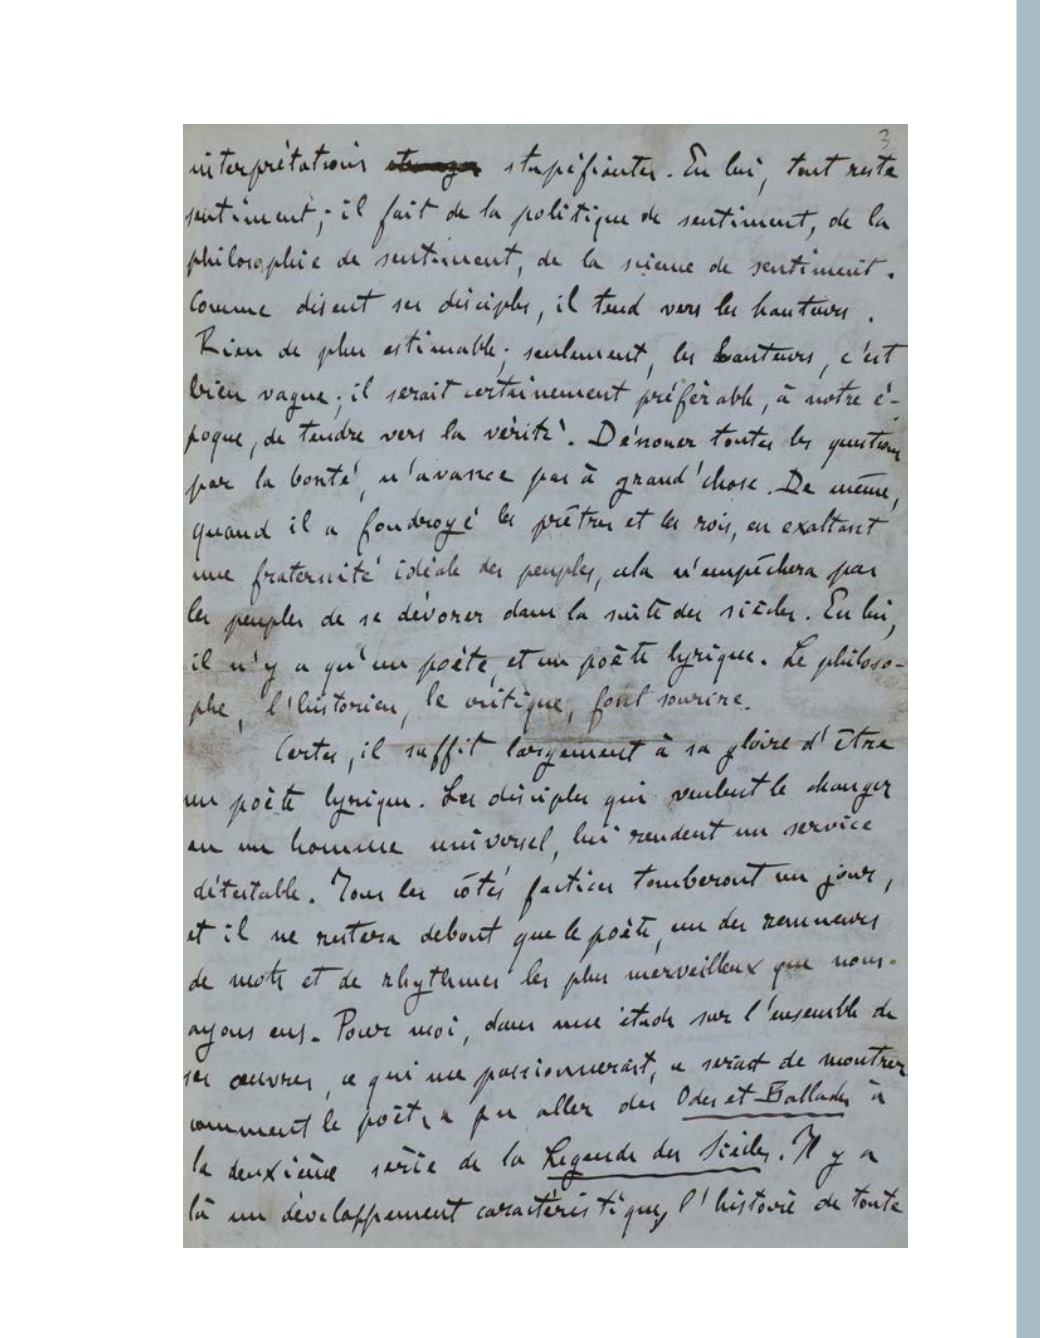 3
interprétations stupéfiantes. En lui, tout reste
sentiment ; il fait de la politique de sentiment, de la
philosophie de sentiment, de la science de sentiment.
Comme disent ses disciples, il tend vers les hauteurs.
Rien de plus estimable ; seulement, les hauteurs, c'est
bien vague ; il serait certainement préférable, à notre é-
poque, de tendre vers la vérité. Dénouer toutes les questions
par la bonté, n'avance pas à grand'chose. De même,
quand il a foudroyé les prêtres et les rois, en exaltant
une fraternité idéale des peuples, cela n'empêchera pas
les peuples de se dévorer dans la suite des siècles. En lui,
il n'y a qu'un poète, et un poète lyrique. Le philoso-
phe, l'historien, le critique, font sourire.
Certes, il suffit largement à sa gloire d'être
un poète lyrique. Les disciples qui veulent le changer
en un homme universel, lui rendent un service
détestable. Tous les côtés factices tomberont un jour,
et il ne restera debout que le poète, un des remueurs
de mots et de rhythmes les plus merveilleux que nous
ayons eus. Pour moi, dans une étude sur l'ensemble de
ses œuvres, ce qui me passionnerait, ce serait de montrer
comment le poète a pu aller des Odes et Ballades à
la deuxième série de la Légende des Siècles. Il y a
là un développement caractéristique, l'histoire de toute